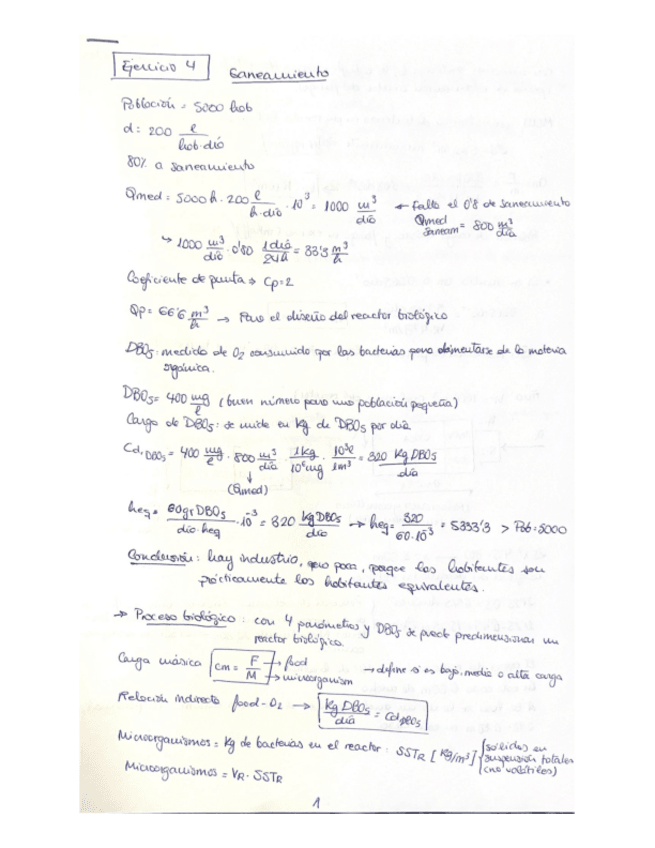 Ejercicio 4 Saneamiento
Población = 5000 hab
d: 200 l/hab·día
80% a saneamiento
Qmed = 5000 h · 200 l/h·día · 10^3 = 1000 m³/día ← falta el 0'8 de saneamiento Qmed saneam = 800 m³/día
↳ 1000 m³/día · 0'80 1 día/24h = 33'3 m³/h
Coeficiente de punta → Cp=2
Qp = 66'6 m³/h → Para el diseño del reactor biológico
DBO5: medida de O2 consumido por las bacterias para alimentarse de la materia
orgánica.
DBO5 = 400 mg/l (buen número para una población pequeña)
Carga de DBO5: se mide en kg de DBO5 por día
Cd,DBO5 = 400 mg/l · 800 m³/día · 1kg/10^6mg · 10^3l/1m³ = 320 Kg DBO5/día
↓
(Qmed)
heq = 60gr DBO5/día·heq · 10^-3 = 320 kg DBO5/día → heq = 320/60·10^-3 = 5333'3 > Pob=5000
Conclusión: hay industria, pero poca, porque los habitantes son
prácticamente los habitantes equivalentes.
→ Proceso biológico: con 4 parámetros y DBO5 se puede predimensionar un
reactor biológico.
Carga másica cm = F/M → food → microorganism → define si es bajo, media o alta carga
Relación indirecta food-O2 → Kg DBO5/día = Cd DBO5
Microorganismos = kg de bacterias en el reactor: SSTR [kg/m³] {sólidos en suspensión totales (no volátiles)
Microorganismos = VR · SSTR
1